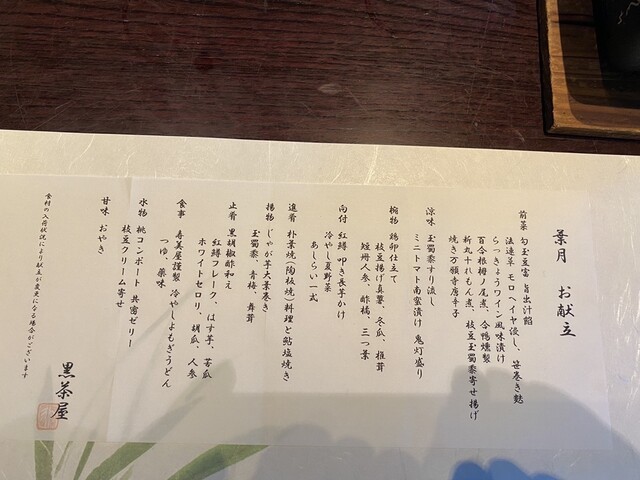 葉月　お献立
前菜　勾玉豆富　旨出汁餡
法連草　モロヘイヤ浸し、笹巻き麩
らっきょうワイン風味漬け
百合根梅ノ尾煮、合鴨燻製
新丸十れもん煮、枝豆玉蜀黍寄せ揚げ
焼き万願寺唐辛子
涼味　玉蜀黍すり流し
ミニトマト南蛮漬け　鬼灯盛り
椀物　鶏卵仕立て
枝豆揚げ真薯、冬瓜、椎茸
短冊人参、酢橘、三つ葉
向付　紅鱒　叩き長芋かけ
冷やし夏野菜
あしらい一式
進肴　朴葉焼(陶板焼)料理と鮎塩焼き
揚物　じゃが芋大葉巻き
玉蜀黍、青梅、舞茸
止肴　黒胡椒酢和え
紅鱒フレーク、はす芋、苦瓜
ホワイトセロリ、胡瓜、人参
食事　寿美屋謹製　冷やしよもぎうどん
つゆ、薬味
水物　桃コンポート　共蜜ゼリー
枝豆クリーム寄せ
甘味　おやき
食材の入荷状況により献立が変更になる場合がございます
黒茶屋